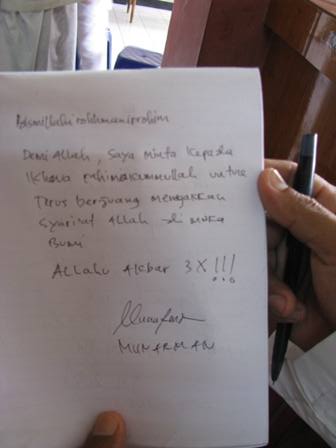 Bismillahirrohmanirrohim
Demi Allah, saya minta kepada
Ikhwa rahimakumullah untuk
Terus berjuang menegakkan
Syari'at Allah di muka
Bumi
Allahu Akbar 3X !!!
MUNARMAN